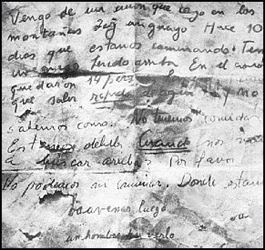 Vengo de un avion que cayo en las
montañas Soy uruguayo Hace 10
dias que estamos caminando. Ten
un amigo herido arriba. En el avion
quedaron 14 perso
que salir rapido de aqui y no
sabemos como. No tenemos comida
Estamos debiles. Cuando nos
a buscar arriba. Por favor
No podemos ni caminar. Donde estamos
va a venir luego
un hombre a verlo